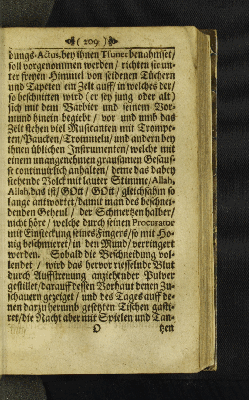 ( 209 )
dungs-Actus, bey ihnen Tsuner benahmset/
soll vorgenommen werden / richten sie un-
ter freyen Himmel von seidenen Tüchern
und Tapeten ein Zelt auff/ in welches der/
so beschnitten wird (er sey jung oder alt)
sich mit dem Barbier und seinem Vor-
mund hinein begiebt / vor und umb das
Zelt stehen viel Musicanten mit Trompe-
ten/Paucken/Trommeln/ und andern bey
ihnen üblichen Instrumenten/ welche mit
einem unangenehmen grausamen Getau-
se continuirlich anhalten/ deme das dabey
stehende Volck mit lauter Stimme/Allah,
Allah, das ist/ GOtt/ GOtt/ gleichsahm so
lange antwortet/damit man des beschnei-
denden Geheul / der Schmertzen halber/
nicht höre / welche durch seinen Procurator
mit Einsteckung seines Fingers/ so mit Ho-
nig beschmieret/ in den Mund/ verringert
werden. Sobald die Beschneidung vol-
lendet / wird das hervor riesselnde Blut
durch Auffstreuung anziehender Pulver
gestillet/ darauff dessen Vorhaut denen Zu-
schauern gezeiget / und des Tages auff de-
nen darzu herumb gesetzten Tischen gasti-
ret/ die Nacht aber mit Spielen und Tan-
O tzen